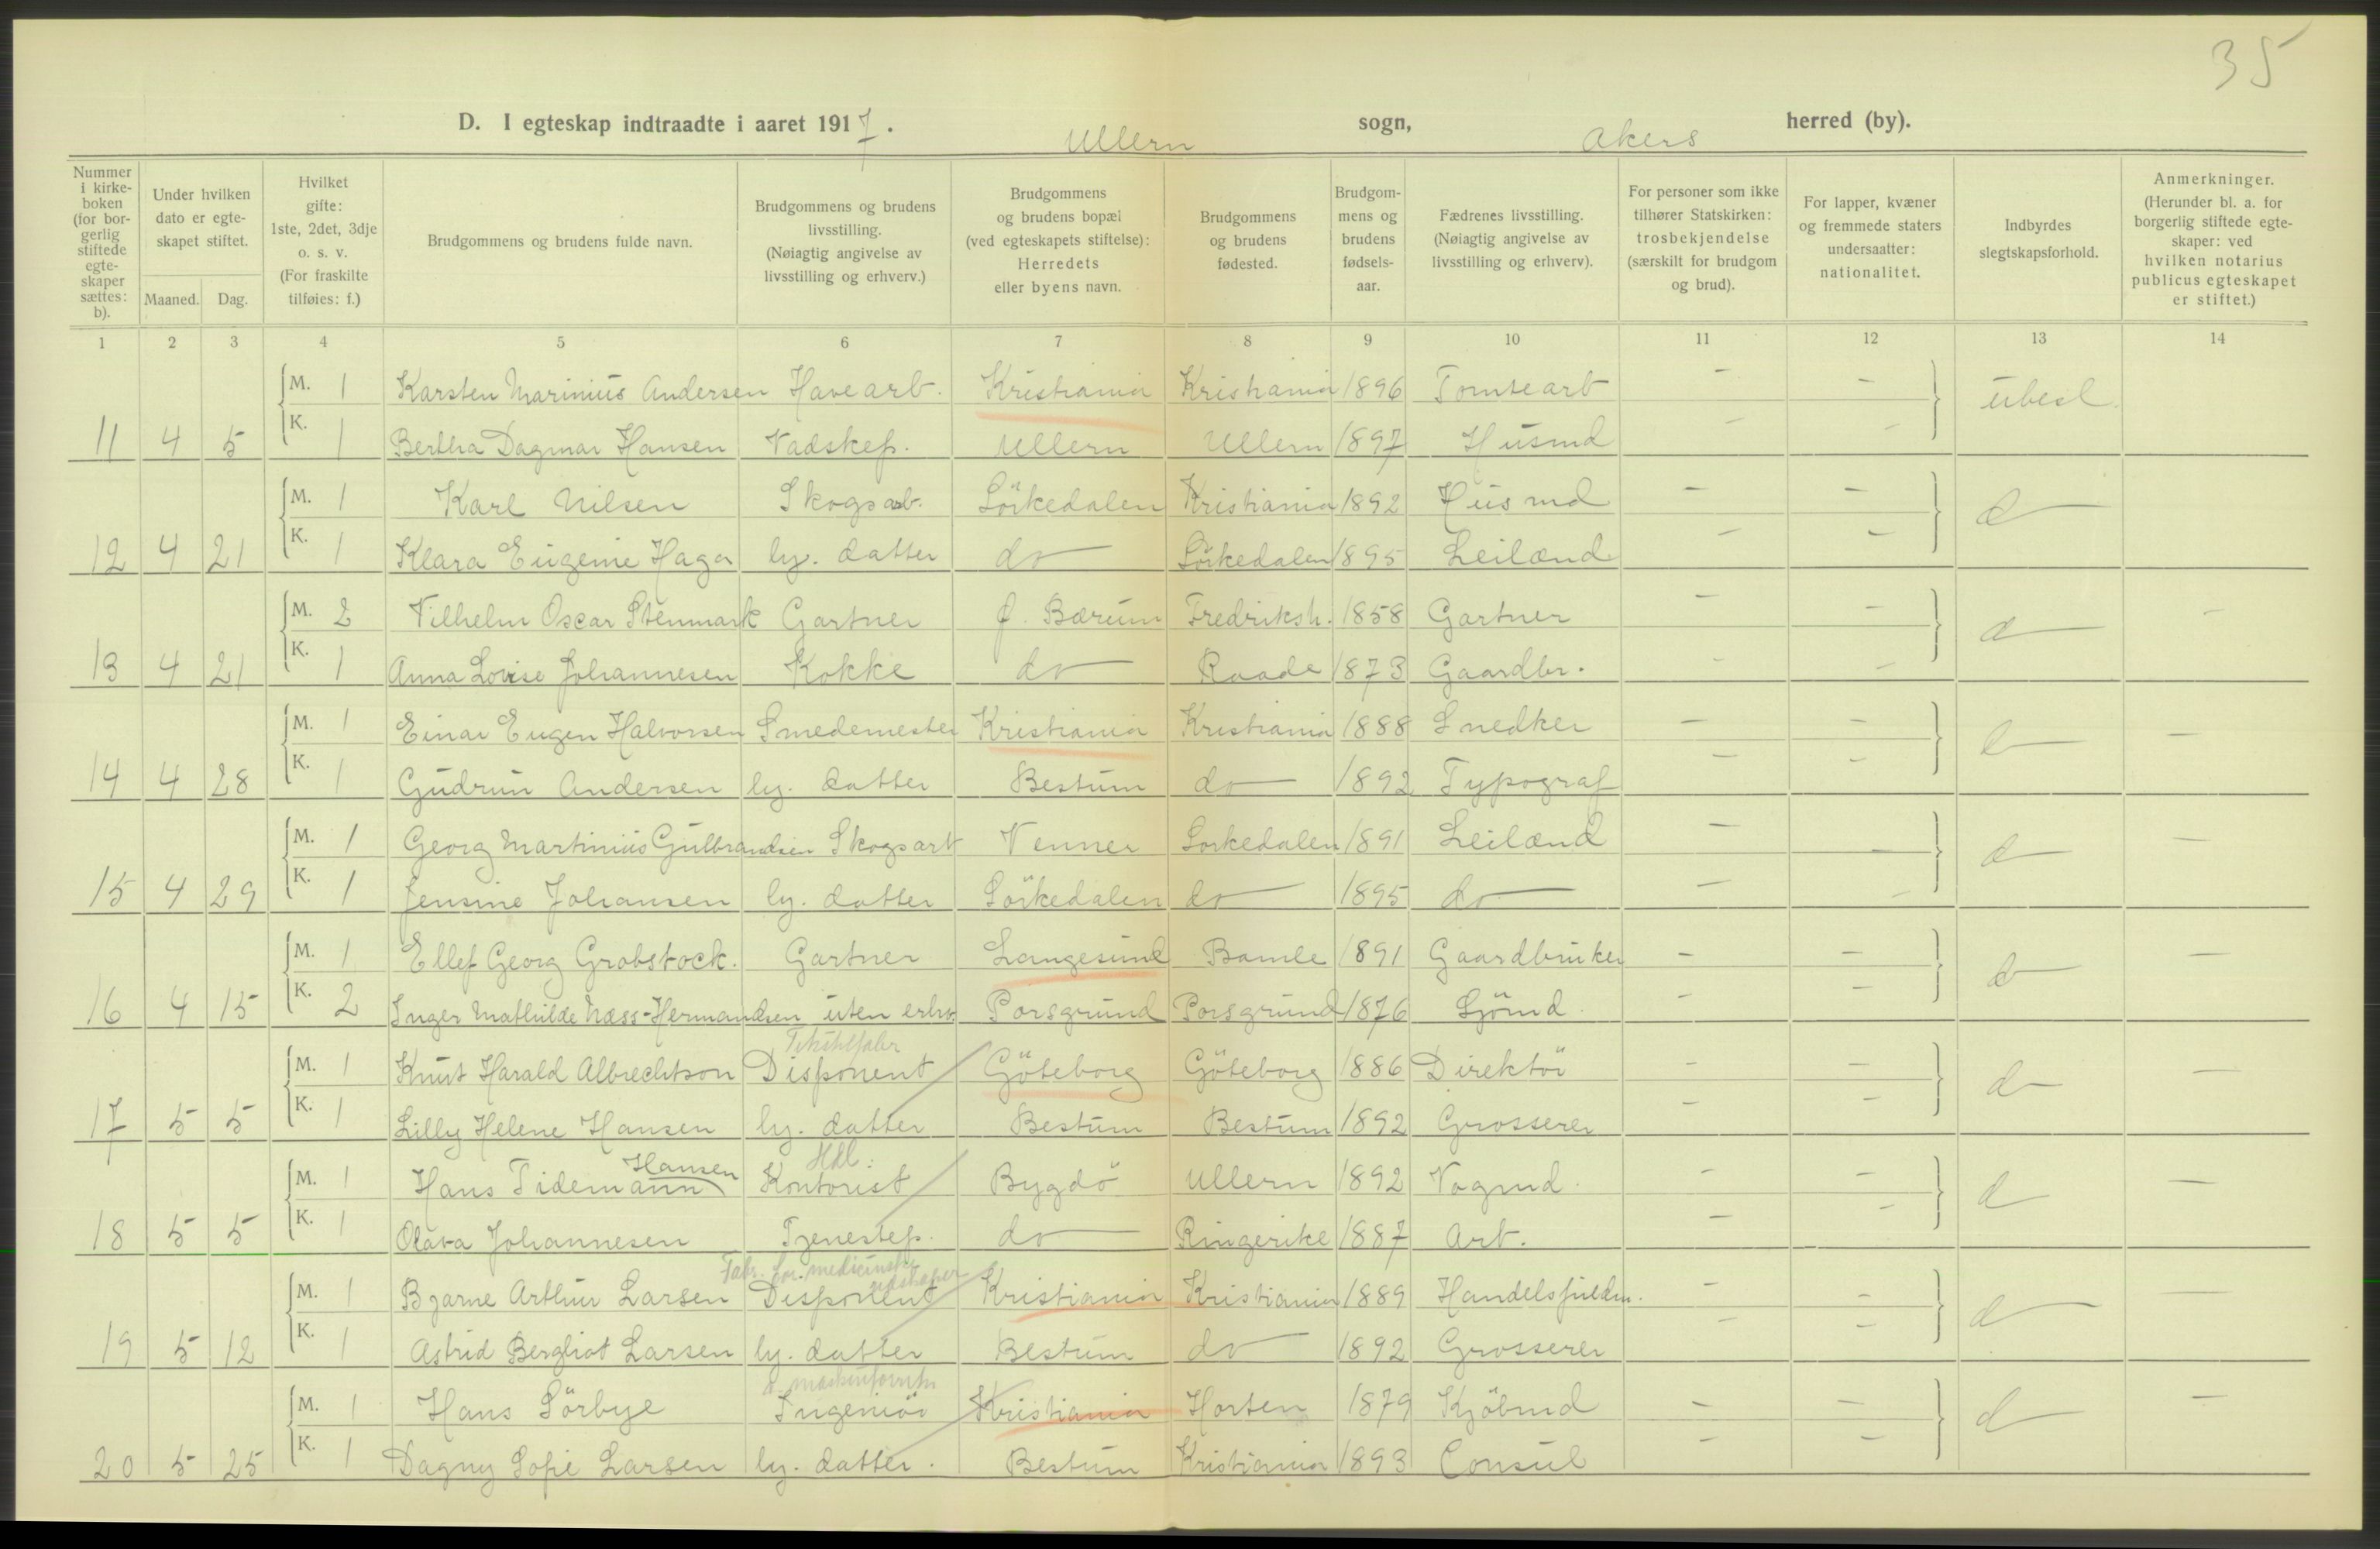 35
D. I egteskap indtraadte i aaret 1917. Ullern sogn, Akers herred (by).
Nummer i kirke-boken (for bor-gerlig stiftede egte-skaper sættes: b).
Under hvilken dato er egte-skapet stiftet.
Maaned. Dag.
Hvilket gifte: 1ste, 2det, 3dje o. s. v. (For fraskilte tilføies: f.)
Brudgommens og brudens fulde navn.
Brudgommens og brudens livsstilling. (Nøiagtig angivelse av livsstilling og erhverv.)
Brudgommens og brudens bopæl (ved egteskapets stiftelse): Herredets eller byens navn.
Brudgommens og brudens fødested.
Brudgom-mens og brudens fødsels-aar.
Fædrenes livsstilling. (Nøiagtig angivelse av livsstilling og erhverv).
For personer som ikke tilhører Statskirken: trosbekjendelse (særskilt for brudgom og brud).
For lapper, kvæner og fremmede staters undersaatter: nationalitet.
Indbyrdes slegtskapsforhold.
Anmerkninger. (Herunder bl. a. for borgerlig stiftede egte-skaper: ved hvilken notarius publicus egteskapet er stiftet.)
1 2 3 4 5 6 7 8 9 10 11 12 13 14
M. 1 Karsten Marinius Andersen Havearb. Kristiania Kristiania 1896 Tomtearb - - ubesl.
11 4 5 K. 1 Bertha Dagmar Hansen Vadskep. Ullern Ullern 1897 Husmd - -
M. 1 Karl Nilsen Skogsarb. Sörkedalen Kristiania 1892 Husmd - - d
12 4 21 K. 1 Klara Eugenie Haga hj. datter do Sörkedalen 1895 Leilænd - -
M. 2 Vilhelm Oscar Stenmark Gartner Ø. Bærum Fredriksh. 1858 Gartner - - d -
13 4 21 K. 1 Anna Lovise Johannesen Kokke do Raade 1873 Gaardbr. - -
M. 1 Einar Eugen Halvorsen Smedemester Kristiania Kristiania 1888 Snedker - - d -
14 4 28 K. 1 Gudrun Andersen hj. datter Bestum do 1892 Typograf - -
M. 1 Georg Martinius Gulbrandsen Skogsarb Venner Sorkedalen 1891 Leilænd - - d -
15 4 29 K. 1 Jensine Johansen hj. datter Sörkedalen do 1895 do - -
M. 1 Ellef Georg Grobstock. Gartner Langesund Bamle 1891 Gaardbruker - - d -
16 4 15 K. 2 Inger Mathilde Næss-Hermandsen uten erhv. Porsgrund Porsgrund 1876 Sjömd. - -
Tekstilfabr
M. 1 Knut Harald Albrechtson Disponent Göteborg Göteborg 1886 Direktör - - d -
17 5 5 K. 1 Lilly Helene Hansen hj. datter Bestum Bestum 1892 Grosserer - -
Hansen Hdl.
M. 1 Hans Tidemann Kontorist Bygdö Ullern 1892 Vognmd. - - d -
18 5 5 K. 1 Olava Johannesen Tjenestep. do Ringerike 1887 Arb. - -
Fabr. for medicinske redskaper
M. 1 Bjarne Arthur Larsen Disponent Kristiania Kristiania 1889 Handelsfuldm. - - d -
19 5 12 K. 1 Astrid Bergliot Larsen hj. datter Bestum do 1892 Grosserer - -
maskinforretn
M. 1 Hans Sörbye Ingeniör Kristiania Horten 1879 Kjöbmd - - d -
20 5 25 K. 1 Dagny Sofie Larsen hj. datter. Bestum Kristiania 1893 Consul - -